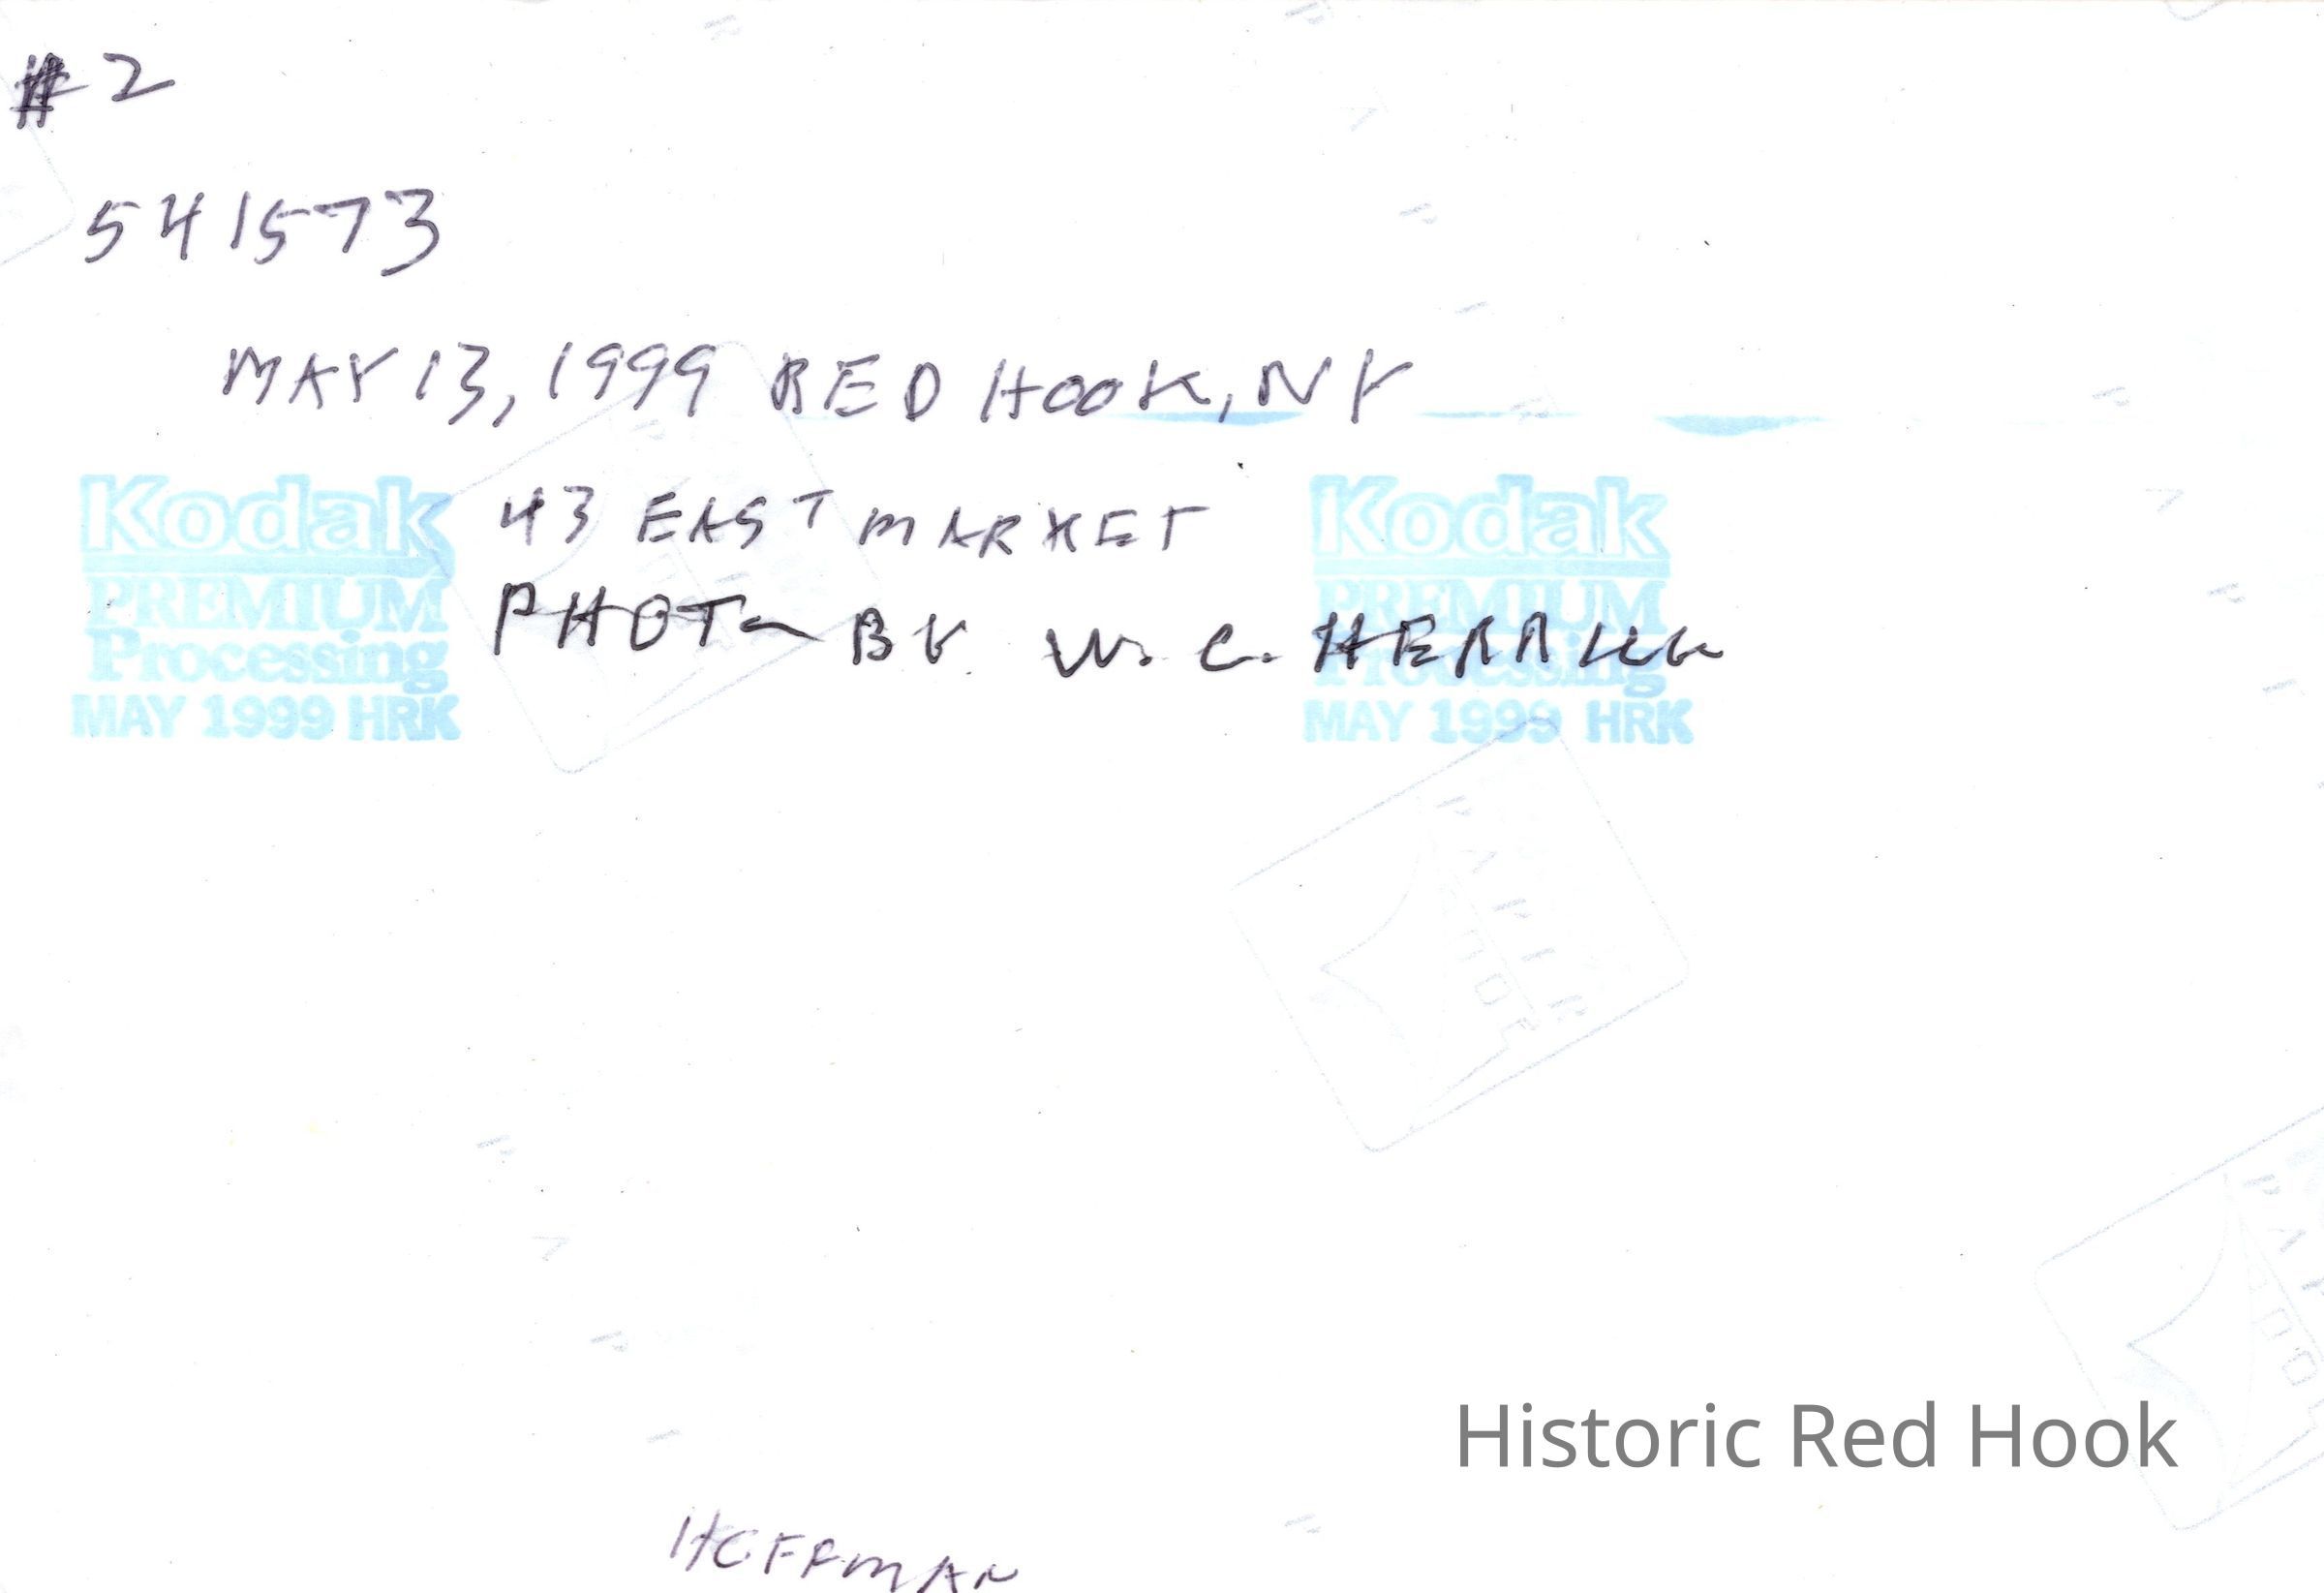 #2
541573
MAY 13, 1999 RED HOOK, NY
43 EAST MARKET
PHOTO BY W. C. HERRICK
Kodak
PREMIUM
Processing
MAY 1999 HRK
Kodak
PREMIUM
Processing
MAY 1999 HRK
PAPIER
Historic Red Hook
HOFFMAN